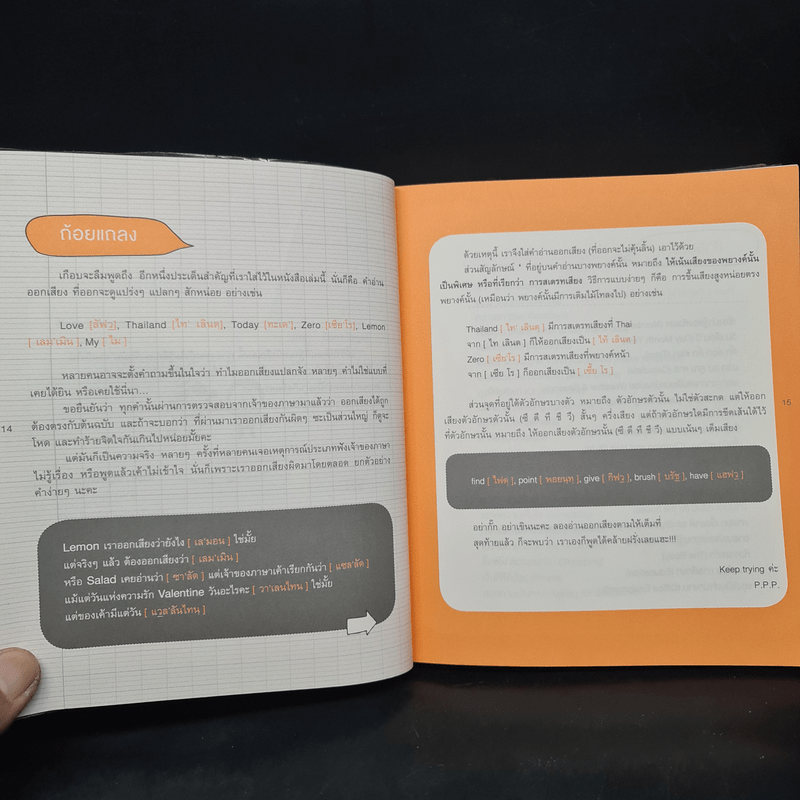 ถ้อยแถลง
เกือบจะลืมพูดถึง อีกหนึ่งประเด็นสำคัญที่เราใส่ไว้ในหนังสือเล่มนี้ นั่นก็คือ คำอ่าน
ออกเสียง ที่ออกจะดูแปร่งๆ แปลกๆ สักหน่อย อย่างเช่น
Love [ลัฟว], Thailand [ไท' เลินด], Today [ทะเด'], Zero [เซีย'โร], Lemon
[ เลม'เมิน ], My [ ไม ]
หลายคนอาจจะตั้งคำถามขึ้นในใจว่า ทำไมออกเสียงแปลกจัง หลายๆ คำไม่ใช่แบบที่
เคยได้ยิน หรือเคยใช้นี่นา...
ขอยืนยันว่า ทุกคำนั้นผ่านการตรวจสอบจากเจ้าของภาษามาแล้วว่า ออกเสียงได้ถูก
ต้องตรงกับต้นฉบับ และถ้าจะบอกว่า ที่ผ่านมาเราออกเสียงกันผิดๆ ซะเป็นส่วนใหญ่ ก็ดูจะ
โหด และทำร้ายจิตใจกันเกินไปหน่อยมั้ยคะ
แต่มันก็เป็นความจริง หลายๆ ครั้งที่หลายคนเจอเหตุการณ์ประเภทฟังเจ้าของภาษา
ไม่รู้เรื่อง หรือพูดแล้วเค้าไม่เข้าใจ นั่นก็เพราะเราออกเสียงผิดมาโดยตลอด ยกตัวอย่าง
คำง่ายๆ นะคะ
14
Lemon เราออกเสียงว่ายังไง [ เล'มอน ] ใช่มั้ย
แต่จริงๆ แล้ว ต้องออกเสียงว่า [ เลม'เมิน ]
หรือ Salad เคยอ่านว่า [ ซา'ลัด ] แต่เจ้าของภาษาเค้าเรียกกันว่า [ แซล'ลัด ]
แม้แต่วันแห่งความรัก Valentine วันอะไรคะ [ วา'เลนไทน ] ใช่มั้ย
แต่ของเค้ามีแต่วัน [ แวล'ลันไทน ]
ด้วยเหตุนี้ เราจึงใส่คำอ่านออกเสียง (ที่ออกจะไม่คุ้นลิ้น) เอาไว้ด้วย
ส่วนสัญลักษณ์ ' ที่อยู่บนคำอ่านบางพยางค์นั้น หมายถึง ให้เน้นเสียงของพยางค์นั้น
เป็นพิเศษ หรือที่เรียกว่า การสเตรทเสียง วิธีการแบบง่ายๆ ก็คือ การขึ้นเสียงสูงหน่อยตรง
พยางค์นั้น (เหมือนว่า พยางค์นั้นมีการเติมไม้โทลงไป) อย่างเช่น
Thailand [ ไท' เลินดฺ ] มีการสเตรทเสียงที่ Thai
จาก [ ไท เลินด ] ก็ให้ออกเสียงเป็น [ ไท้ เลินดฺ ]
Zero [ เซีย'โร ] มีการสเตรทเสียงที่พยางค์หน้า
จาก [ เซีย โร ] ก็ออกเสียงเป็น [ เซี้ย โร ]
ส่วนจุดที่อยู่ใต้ตัวอักษรบางตัว หมายถึง ตัวอักษรตัวนั้น ไม่ใช่ตัวสะกด แต่ให้ออก
เสียงตัวอักษรตัวนั้น (ซี ดี ที ชี วี) สั้นๆ ครึ่งเสียง แต่ถ้าตัวอักษรใดมีการขีดเส้นใต้ไว้
ที่ตัวอักษรนั้น หมายถึง ให้ออกเสียงตัวอักษรนั้น (ซี ดี ที ชี วี) แบบเน้นๆ เต็มเสียง
15
find [ ไฟดฺ ], point [ พอยนฺทฺ ], give [ กิฟวฺ ], brush [ บรัชฺ ], have [ แฮฟวฺ ]
อย่ากั๊ก อย่าเขินนะคะ ลองอ่านออกเสียงตามให้เต็มที่
สุดท้ายแล้ว ก็จะพบว่า เราเองก็พูดได้คล้ายฝรั่งเลยแฮะ!!!
Keep trying ค่ะ
P.P.P.